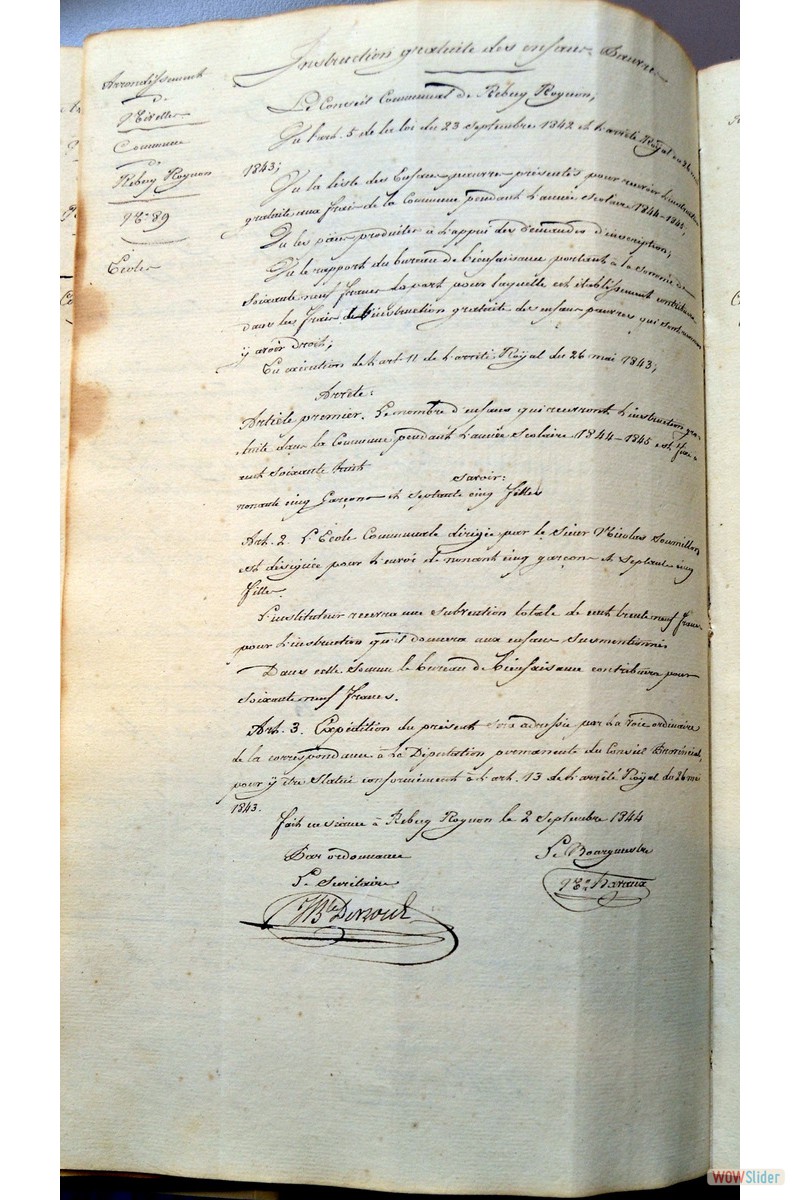 Instruction gratuite des enfans Pauvres
Arrondissement
de
Nivelles
Commune
de
Rebecq Rognon
No 89
Écoles
Le Conseil Communal de Rebecq Rognon;
Vu l'art. 5 de la loi du 23 septembre 1842 et l'arrêté Royal du 26 mai
1843;
Vu la liste des Enfans pauvres présentés pour recevoir l'instruction
gratuite aux frais de la Commune pendant l'année Scolaire 1844-1845;
Vu les pièces produites à l'appui des demandes d'inscription;
Vu le rapport du bureau de bienfaisance portant à la somme de
soixante neuf francs la part pour laquelle cet établissement contribuera
dans les frais de l'instruction gratuite des enfans pauvres qui sont reconnus
y avoir droit;
En exécution de l'art 11 de l'arrêté Royal du 26 mai 1843;
Arrête:
Article premier. Le nombre d'enfans qui recevront l'instruction gra-
tuite dans la Commune pendant l'année Scolaire 1844-1845 est fixé à
cent soixante
savoir:
nonante cinq Garçons et septante cinq filles
Art. 2. L'École Communale dirigée par le Sieur Nicolas Soumillon
est désignée pour l'envoi de nonante cinq garçons et septante cinq
filles.
L'instituteur recevra une subvention totale de cent trente neuf francs
pour l'instruction qu'il donnera aux enfans susmentionnés
Dans cette somme le bureau de bienfaisance contribuera pour
soixante neuf francs.
Art. 3. Expédition du présent sera adressée par la voie ordinaire
de la correspondance à la Députation permanente du Conseil Provincial,
pour y être statué conformément à l'art. 13 de l'arrêté Royal du 26 mai
1843.
fait en séance à Rebecq Rognon le 2 septembre 1844
Par ordonnance
Le Bourgmestre
Le Secrétaire
WOWSlider